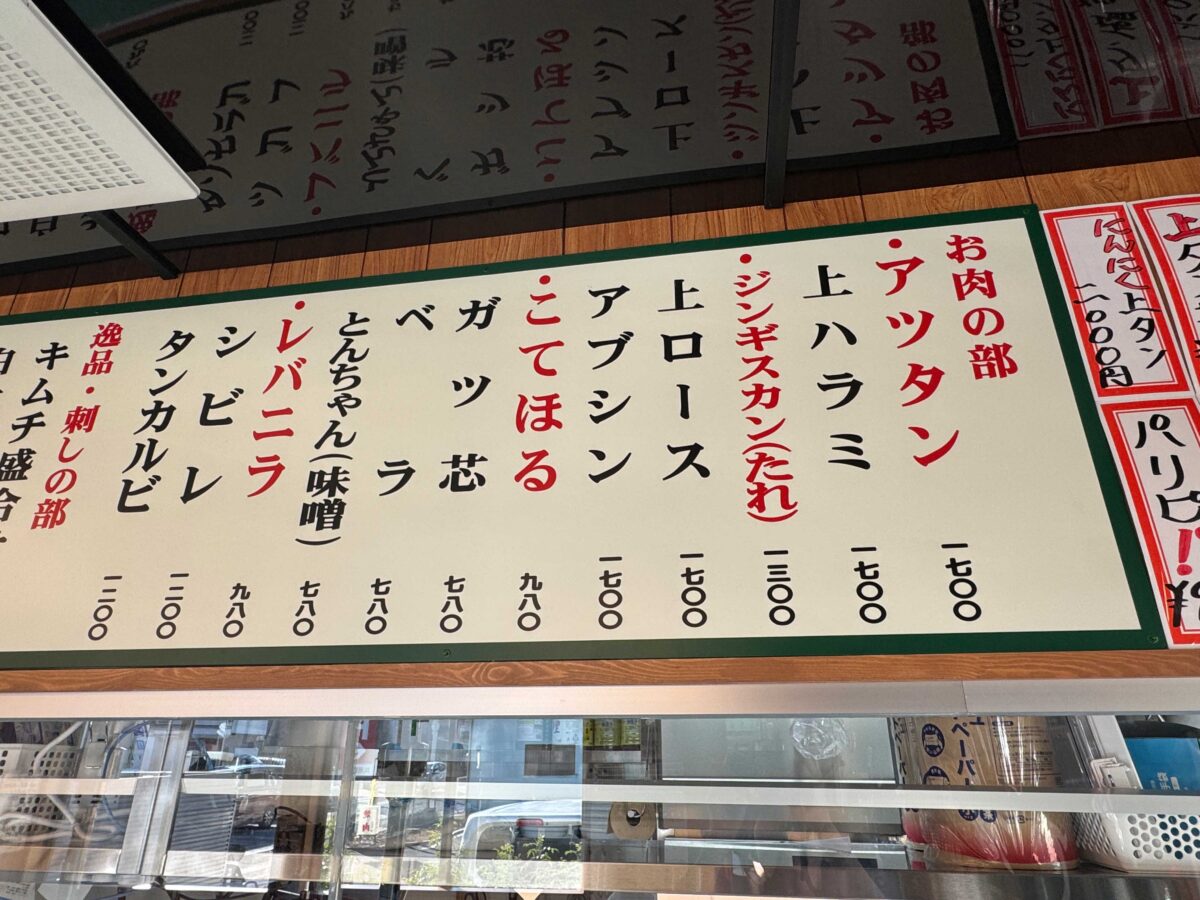 お肉の部
・アツタン 一七〇〇
上ハラミ 一七〇〇
・ジンギスカン(たれ) 一三〇〇
上ロース 一七〇〇
アブシン 一七〇〇
・こてほる 九八〇
ガツ芯 七八〇
ベラ 七八〇
とんちゃん(味噌) 七八〇
・レバニラ 九八〇
シビレ 一二〇〇
タンカルビ 一二〇〇
逸品・刺しの部
キムチ盛合
にんにく上タン
二〇〇〇円
上タ
パリピ!
ペーパー